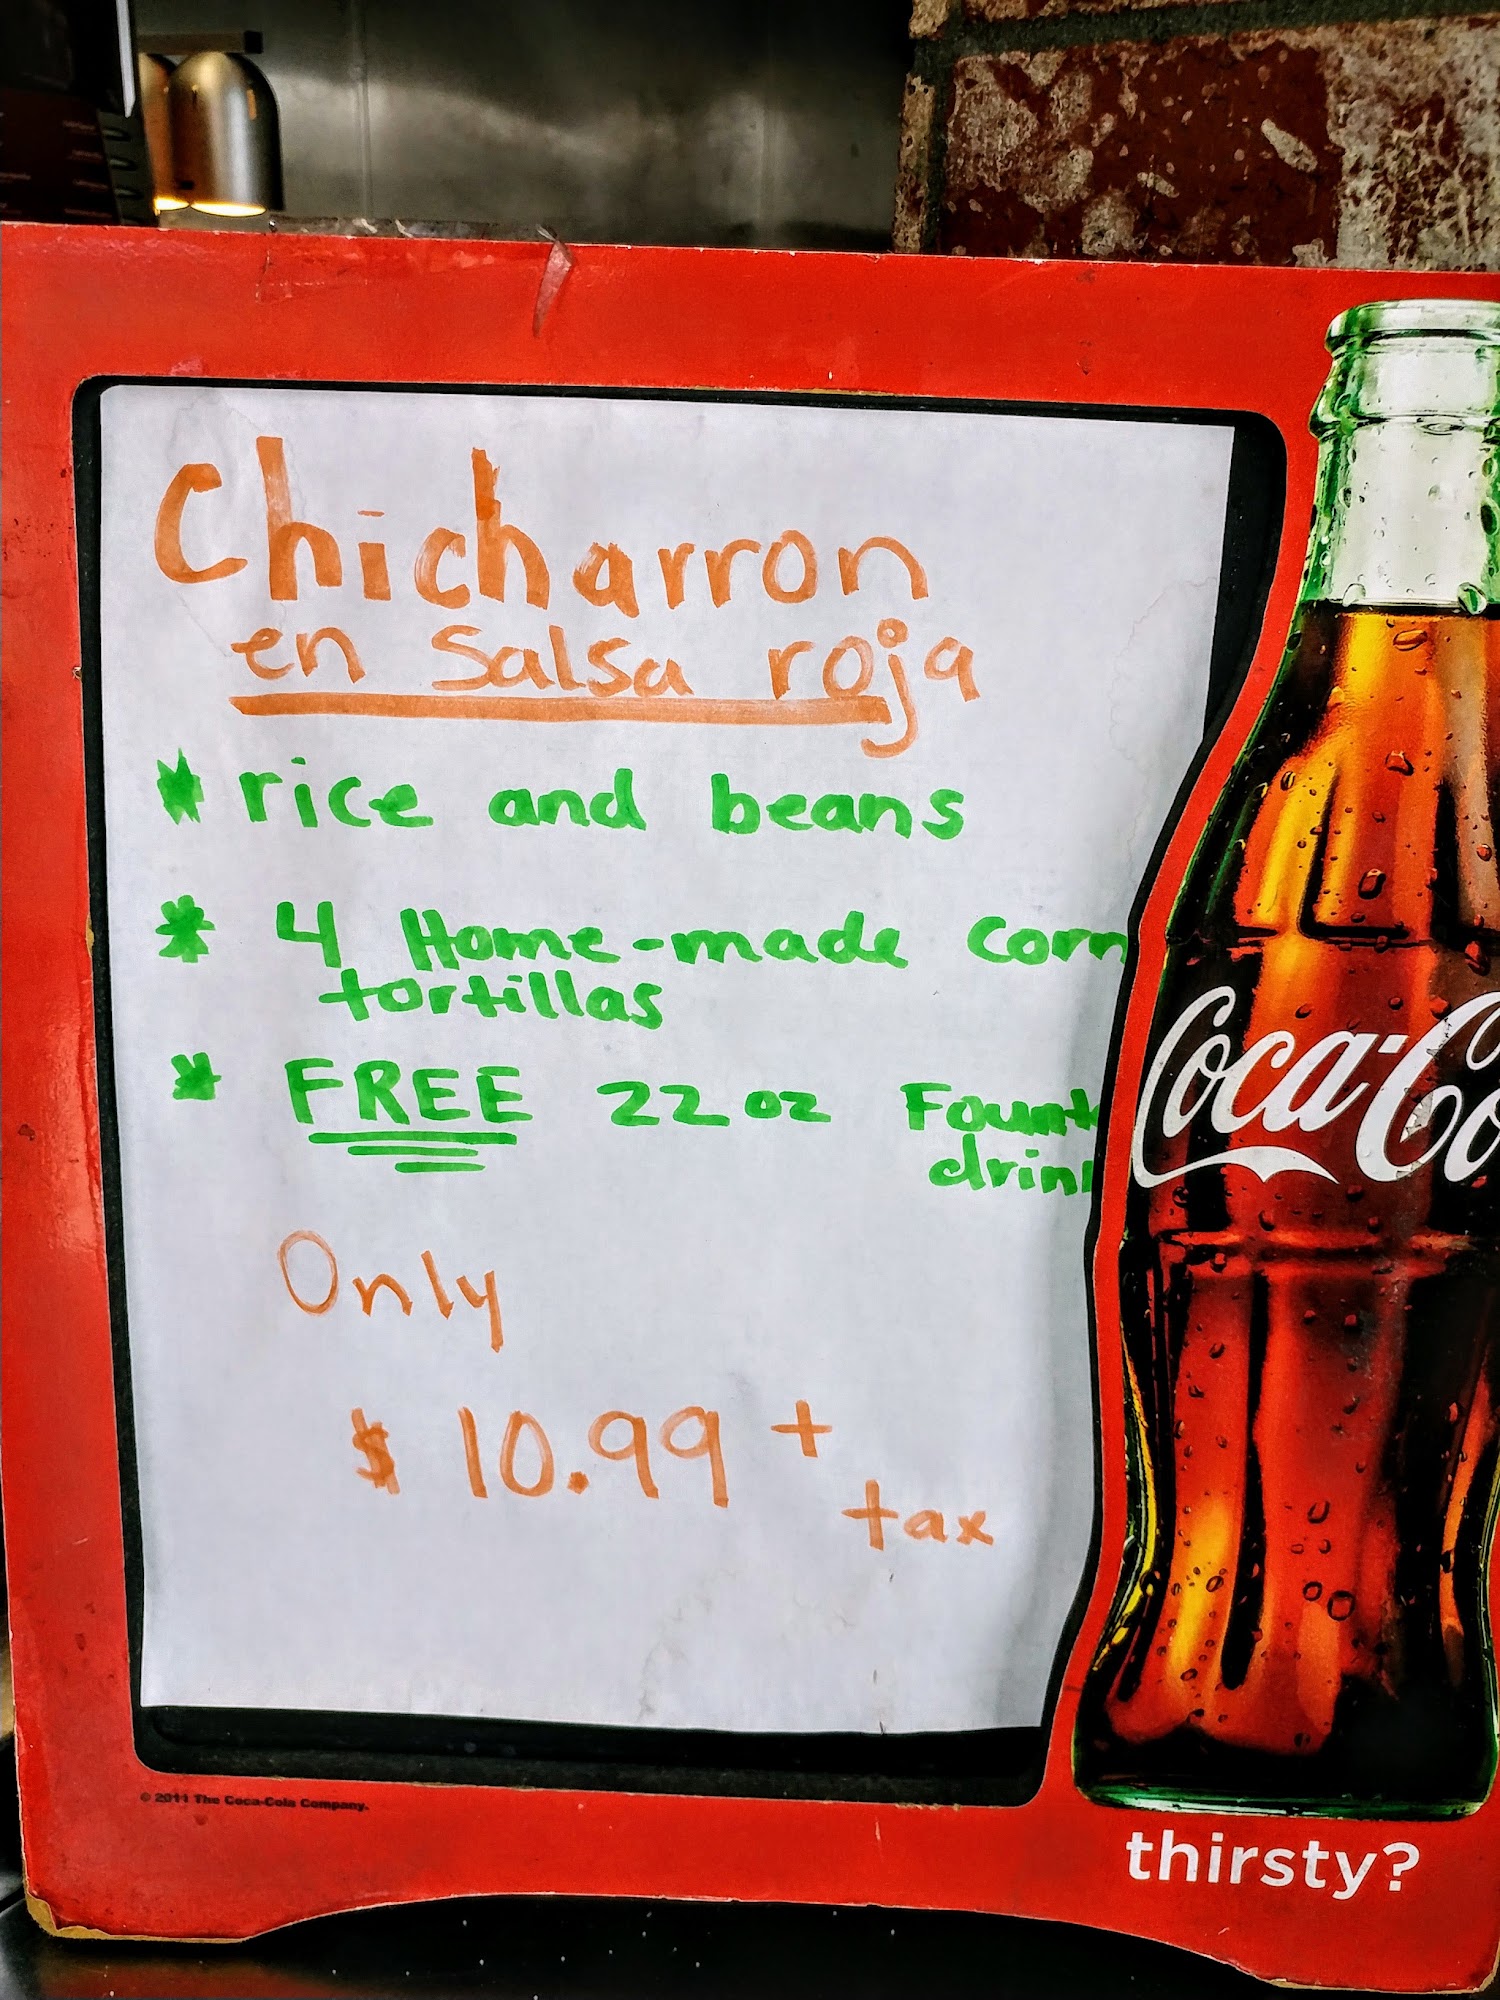 Chicharron
en Salsa roja
* rice and beans
* 4 Home-made corn
tortillas
* FREE 22 oz
Only
$ 10.99 +
tax
Coca-Co
© 2011 The Coca-Cola Company.
thirsty?